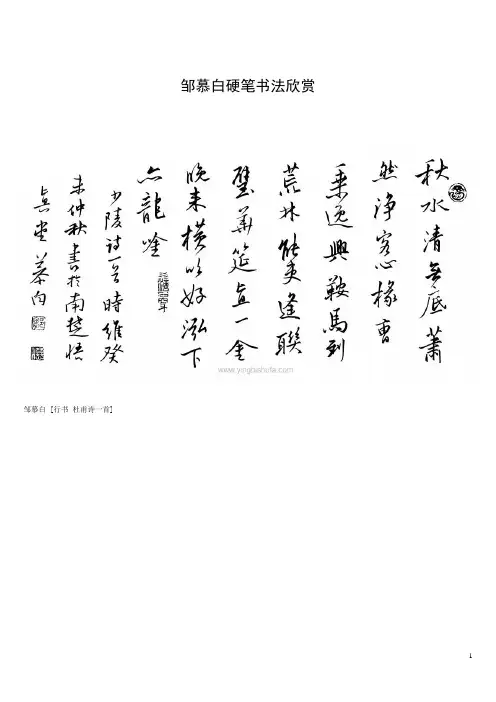 邹慕白硬笔书法欣赏
秋水清無底蕭
然淨客心掾曹
乘逸興鞍馬到
荒林能吏逢聯
璧華筵直一金
晚来横吹好泓下
亦龍吟
少陵詩一首時維癸
未仲秋書於南楚悟
真堂慕白
www.yingbishufa.com
邹慕白 [行书 杜甫诗一首]
1